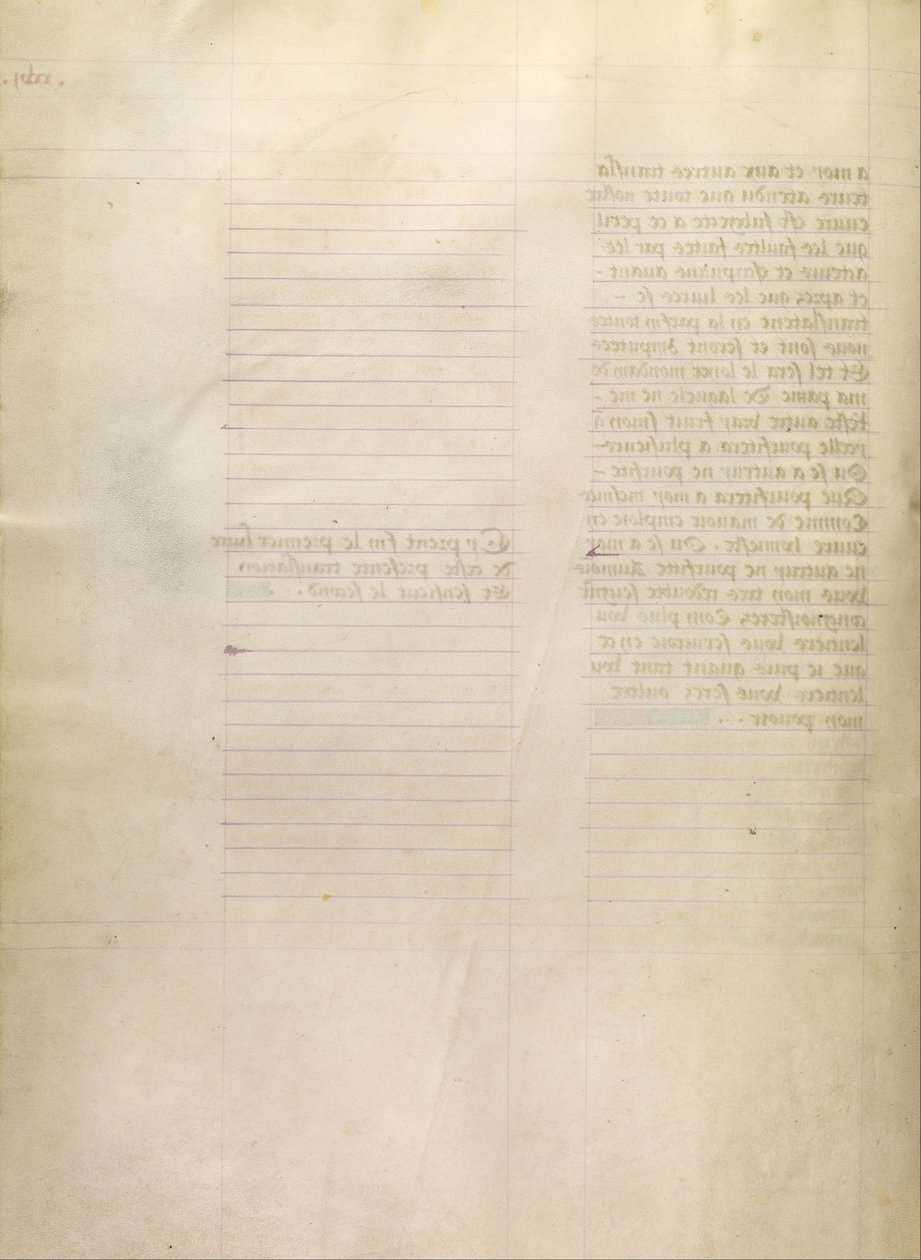 a moy et aux autres transla
teurs atendu que toute nostre
euure est subgette a ce peril
que les faultes faites par les
acteurs et escripuains auant -
et apres que les liures se -
translatent en la parfin toutes
nous sont et seront Imputees
Et tel sera le loyer mondain de
ma paine De laquele ne me -
reste autre vray fruit sinon
pourfitera a plusieurs -
Ou se a autruy ne pourfite -
Que pourfitera a moy mesmes
Comme de manoir emploie en
euure honneste. Ou se a moy
ne autruy ne pourfite Aumoins
vous mon tres redoubte
Com plus vou
lentiers vous seruiroie en ce
que ie puis quant tant vou
lentiers vous oultre
mon pouoir . . .
Cy prent fin le premier liure
de ceste presente translation
Et sensieut le second .